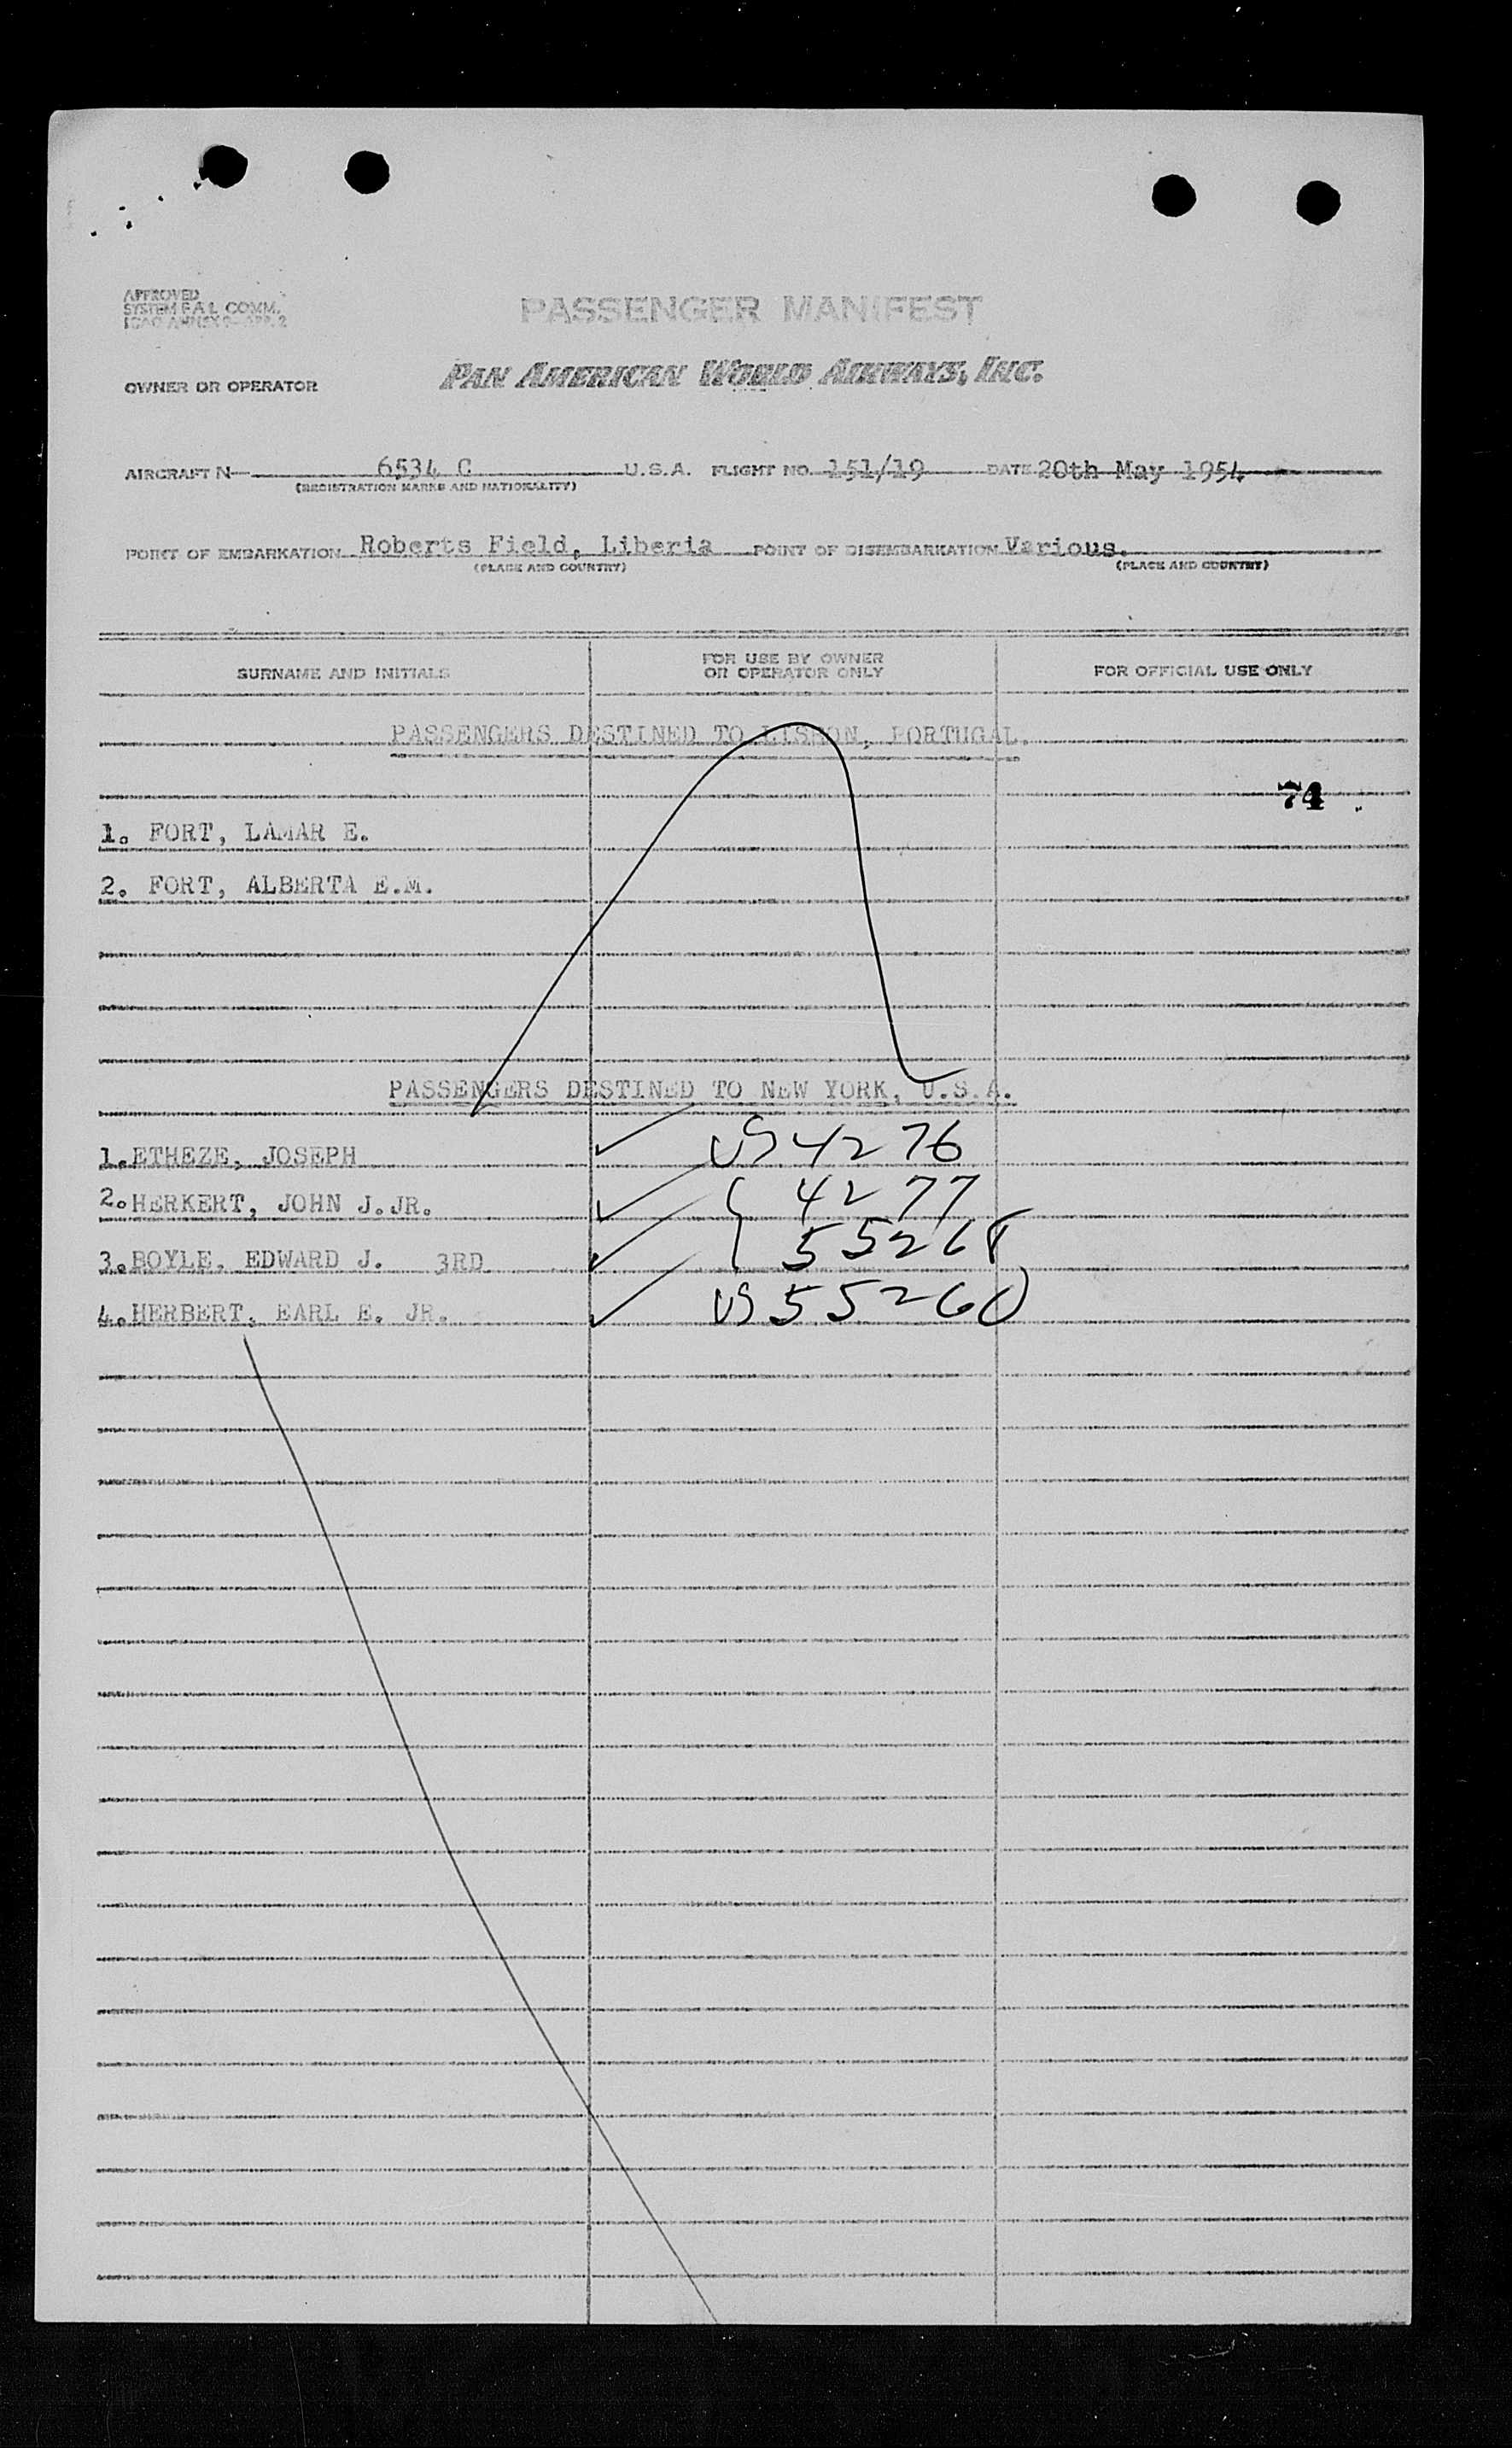 APPROVED
SYSTEM F.A.L. COMM.
ICAO ANNEX 9—APP. 2
PASSENGER MANIFEST
OWNER OR OPERATOR PAN AMERICAN WORLD AIRWAYS, INC.
AIRCRAFT N— 6534 C U.S.A. FLIGHT NO. 151/19 DATE 20th May 1954
(REGISTRATION MARKS AND NATIONALITY)
POINT OF EMBARKATION Roberts Field, Liberia POINT OF DISEMBARKATION Various.
(PLACE AND COUNTRY) (PLACE AND COUNTRY)
SURNAME AND INITIALS FOR USE BY OWNER OR OPERATOR ONLY FOR OFFICIAL USE ONLY
PASSENGERS DESTINED TO LISBON, PORTUGAL.
74
1. FORT, LAMAR E.
2. FORT, ALBERTA E.M.
PASSENGERS DESTINED TO NEW YORK, U.S.A.
1. ETHEZE, JOSEPH ✓ US 4276
2. HERKERT, JOHN J. JR. ✓ 4277
3. BOYLE, EDWARD J. 3RD ✓ 55268
4. HERBERT, EARL E. JR. ✓ US 55260